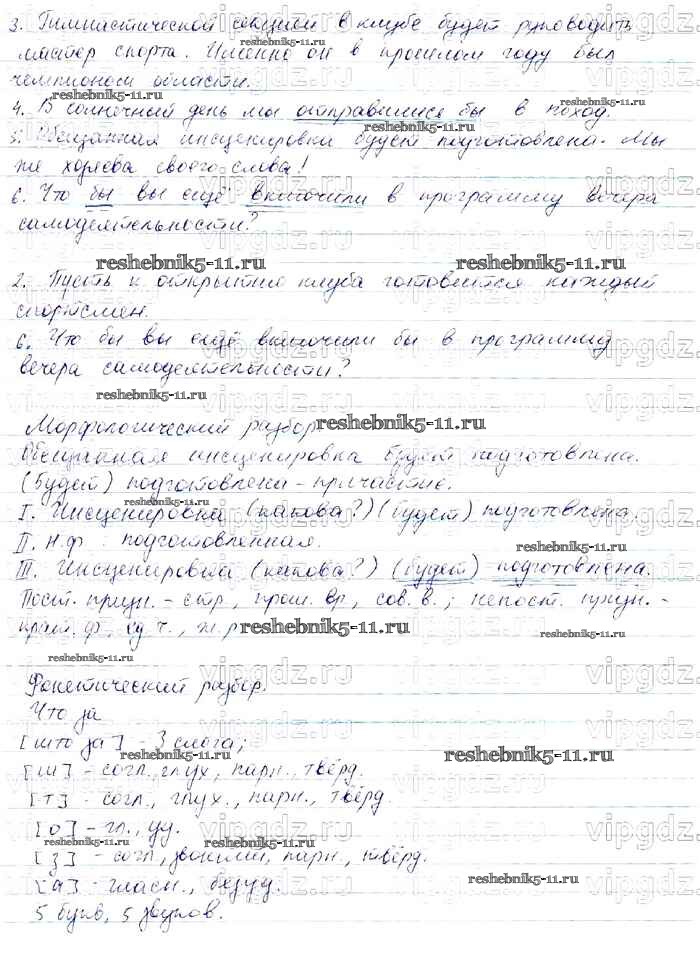 3. Гимнастической секцией в клубе будет руководить
мастер спорта. Именно он в прошлом году был
чемпионом области.
reshebnik5-11.ru
4. В солнечный день мы отправились бы в поход.
reshebnik5-11.ru
5. Обещанная инсценировка будет подготовлена. Мы
же хозяева своего слова!
6. Что бы вы ещё включили в программу вечера
самодеятельности?
reshebnik5-11.ru reshebnik5-11.ru
2. Пусть к открытию клуба готовится каждый
спортсмен.
6. Что бы вы ещё включили бы в программу
вечера самодеятельности?
reshebnik5-11.ru
Морфологический разбор
reshebnik5-11.ru
Обещанная инсценировка будет подготовлена.
(Будет) подготовлена - причастие.
reshebnik5-11.ru
I. Инсценировка (какова?) (будет) подготовлена.
II. н.ф. подготовленная.
reshebnik5-11.ru
III. Инсценировка (какова?) (будет) подготовлена.
Пост. призн. - стр., прош. вр., сов. в.; непост. призн. -
крат. ф., ед. ч., ж. р.
reshebnik5-11.ru
reshebnik5-11.ru
reshebnik5-11.ru
Фонетический разбор.
Что за
[што за] - 3 слога;
reshebnik5-11.ru reshebnik5-11.ru
[ш] - согл., глух., парн., твёрд.
[т] - согл., глух., парн., твёрд.
[о] - гл., уд.
reshebnik5-11.ru reshebnik5-11.ru
[з] - согл., звонкий, парн., твёрд.
[а] - гласн., безуд.
reshebnik5-11.ru
5 букв, 5 звуков.
vipgdz.ru